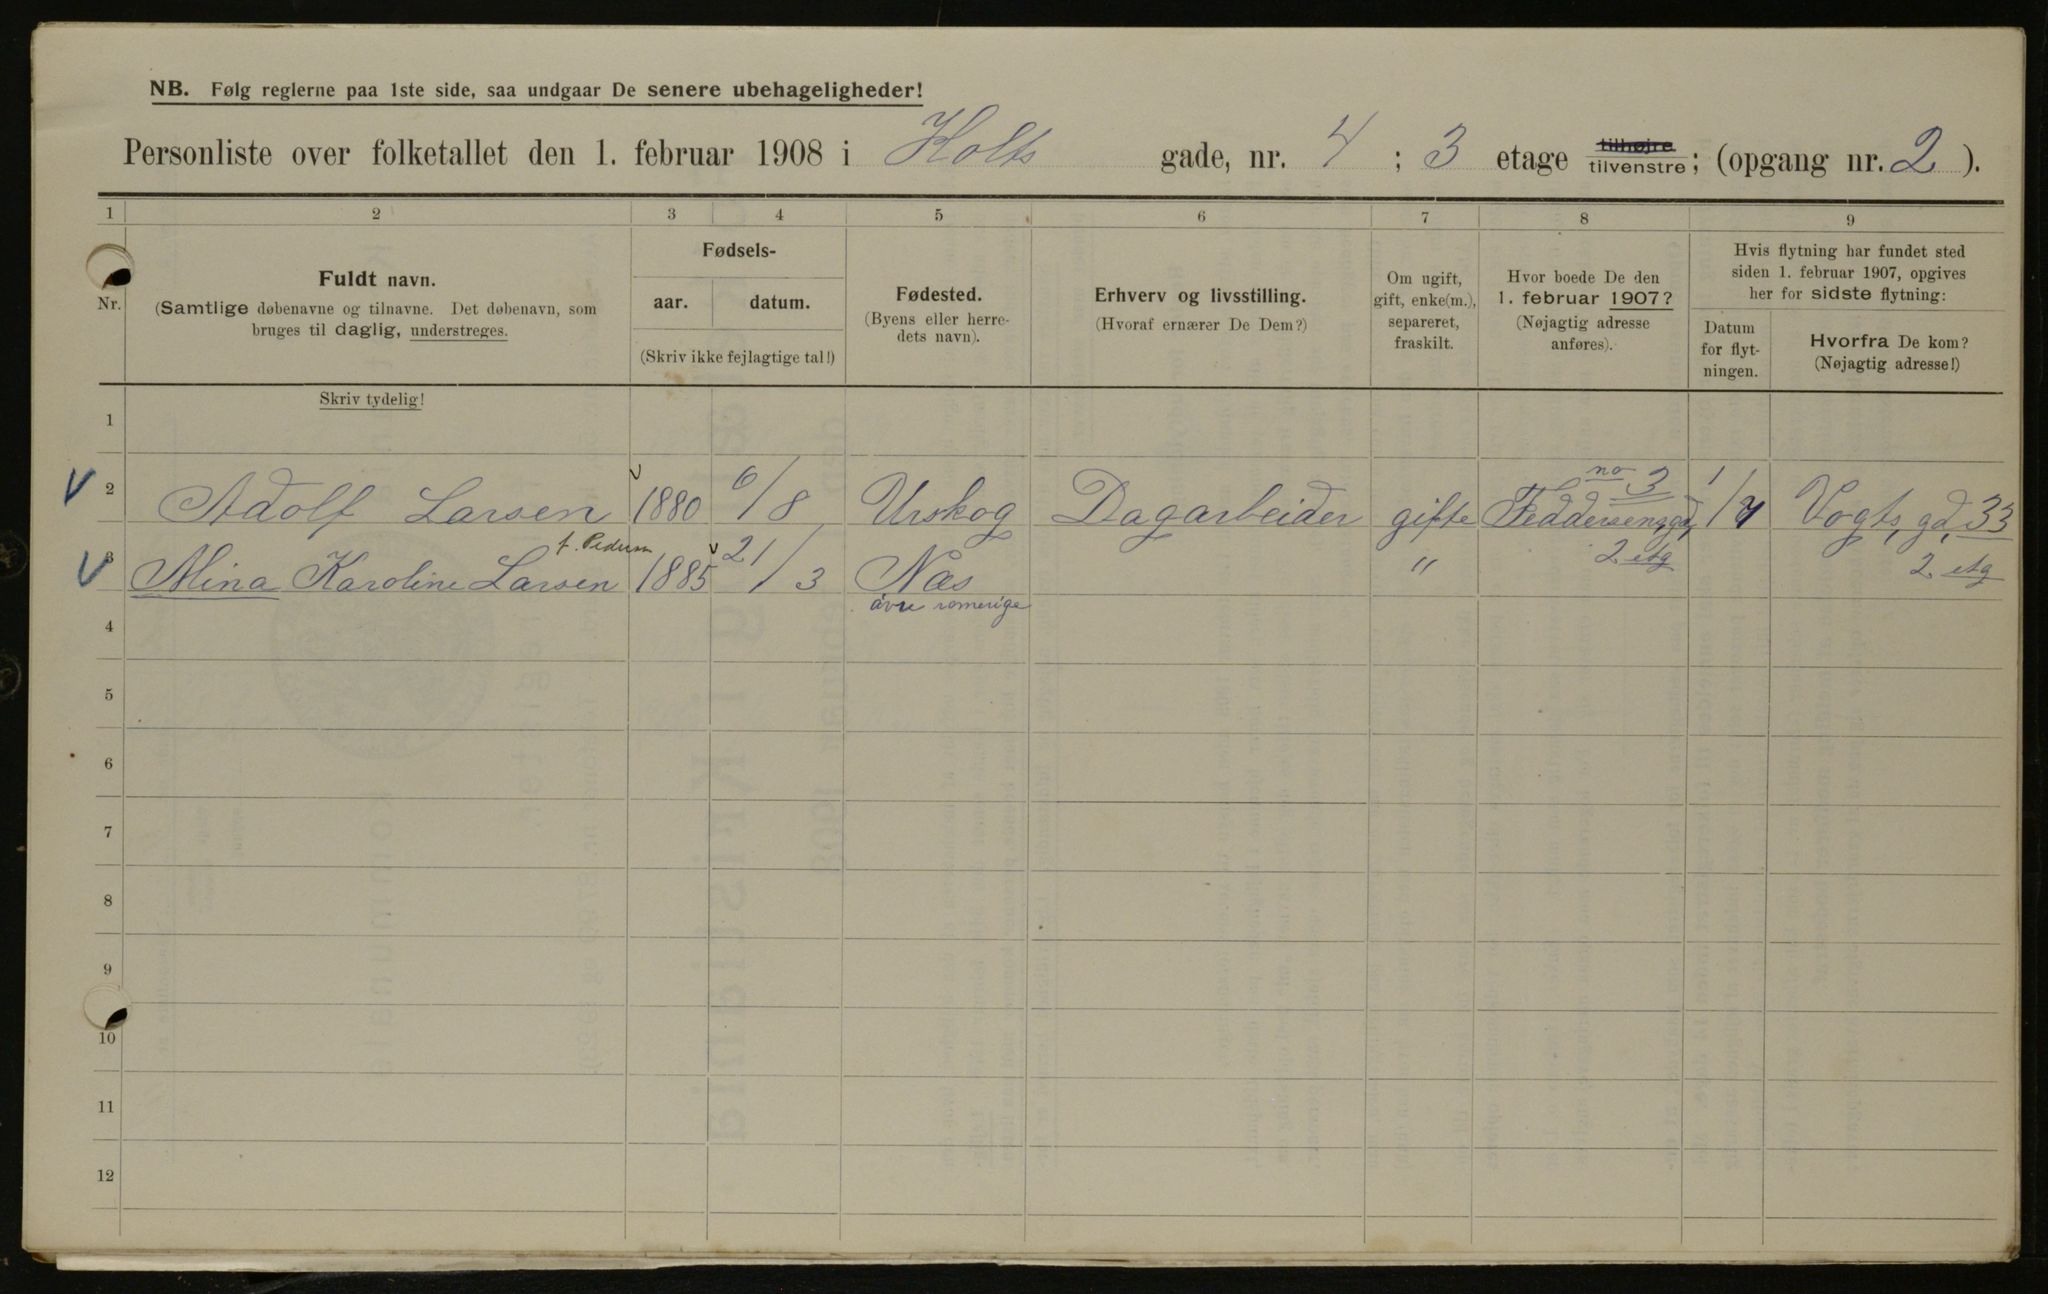 NB. Følg reglerne paa 1ste side, saa undgaar De senere ubehageligheder!
Personliste over folketallet den 1. februar 1908 i Holts gade, nr. 4 ; 3 etage tilhøjre tilvenstre; (opgang nr. 2 ).
1 2 3 4 5 6 7 8 9
Nr.
Fuldt navn.
(Samtlige døbenavne og tilnavne. Det døbenavn, som
bruges til daglig, understreges.
Skriv tydelig!
Fødsels-
aar. datum.
(Skriv ikke fejlagtige tal!)
Fødested.
(Byens eller herre-
dets navn).
Erhverv og livsstilling.
(Hvoraf ernærer De Dem?)
Om ugift,
gift, enke(m.),
separeret,
fraskilt.
Hvor boede De den
1. februar 1907?
(Nøjagtig adresse
anføres).
Hvis flytning har fundet sted
siden 1. februar 1907, opgives
her for sidste flytning:
Datum
for flyt-
ningen.
Hvorfra De kom?
(Nøjagtig adresse!)
1
no 3
2 Adolf Larsen 1880 6/8 Urskog Dagarbeider gifte Feddersensgd, 1/7 Vogts, gd, 33
f. Pedersen 2 etg 2 etg
3 Mina Karoline Larsen 1885 21/3 Næs "
øvre romerige
4
5
6
7
8
9
10
11
12